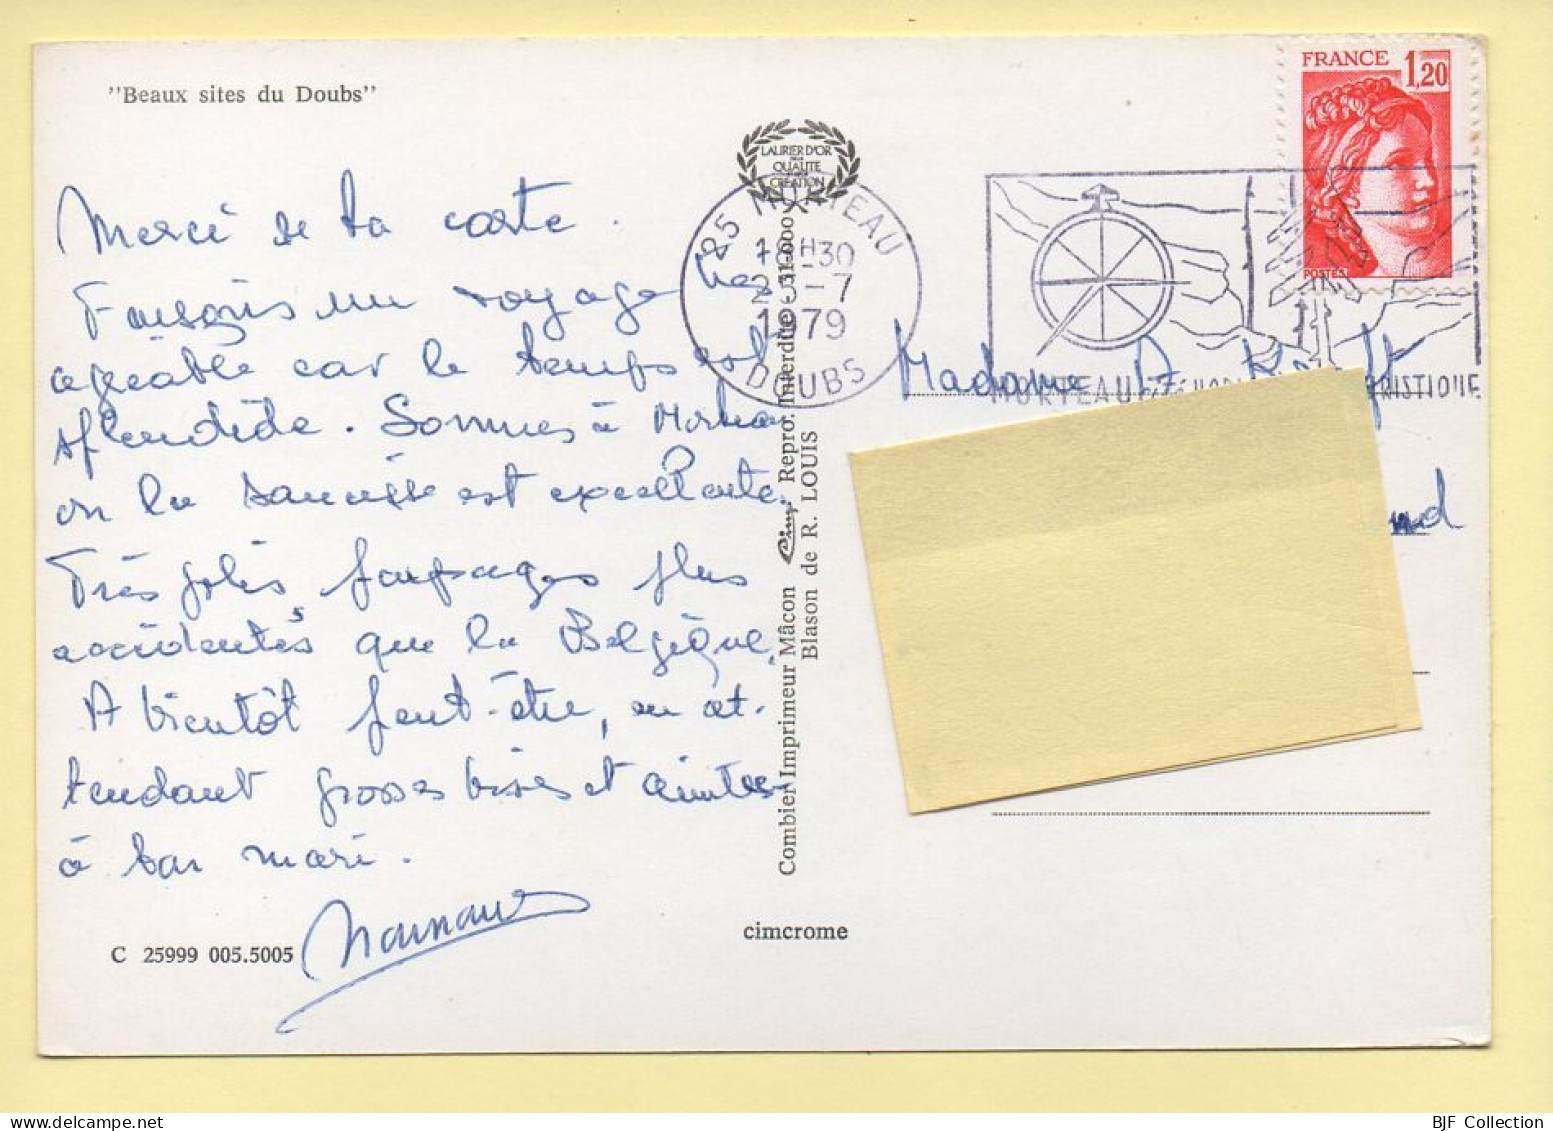 "Beaux sites du Doubs"
Merci de ta carte.
Faisons un voyage très
agréable car le temps est
splendide. Sommes à Morteau
où la saucisse est excellente.
Très jolis paysages plus
accidentés que la Belgique.
A bientôt peut-être, en at-
tendant grosses bises et amitiés
à ton mari.
C 25999 005.5005
LAURIER D'OR
DE LA
QUALITE
CREATION
Combier Imprimeur Mâcon Cim Repro. Interdite
Blason de R. LOUIS
cimcrome
25 MORTEAU
18H30
-7
1979
DOUBS
FRANCE 1,20
POSTES
MORTEAU cité HOR RISTIQUE
Madame
nd
BJF Collection